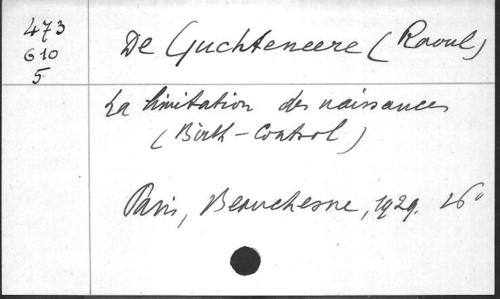 473
610
5
De Guchteneere (Raoul)
La limitation des naissances
(Birth-Control)
Paris, Beauchesne, 1929. 16°